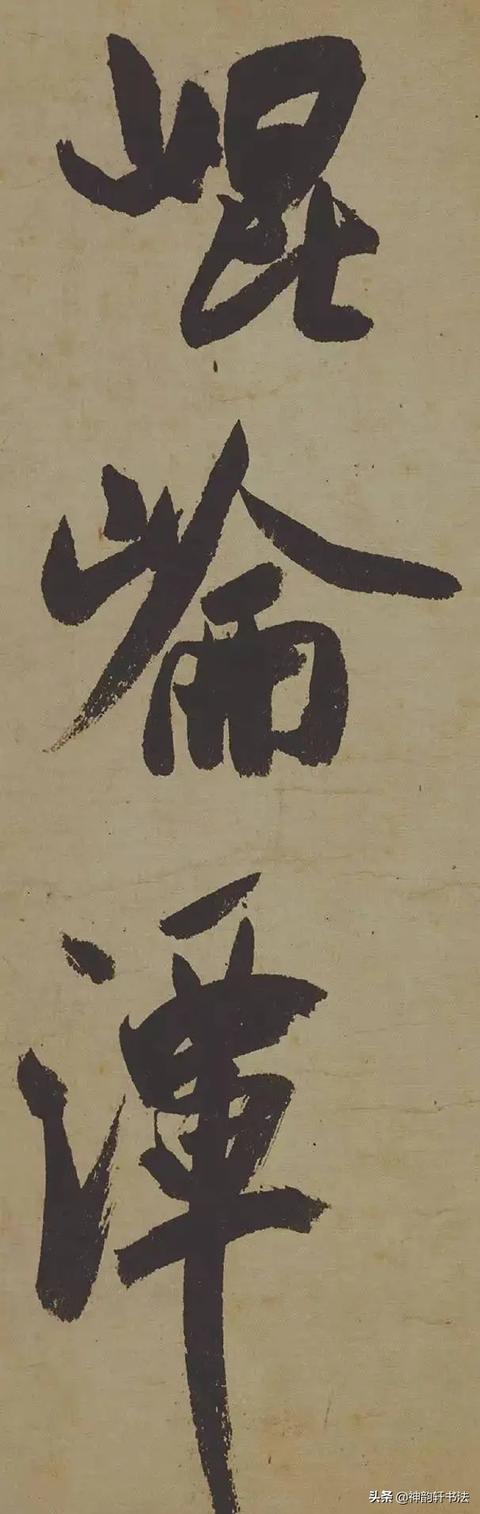 崐崘潭
头条 @神韵轩书法